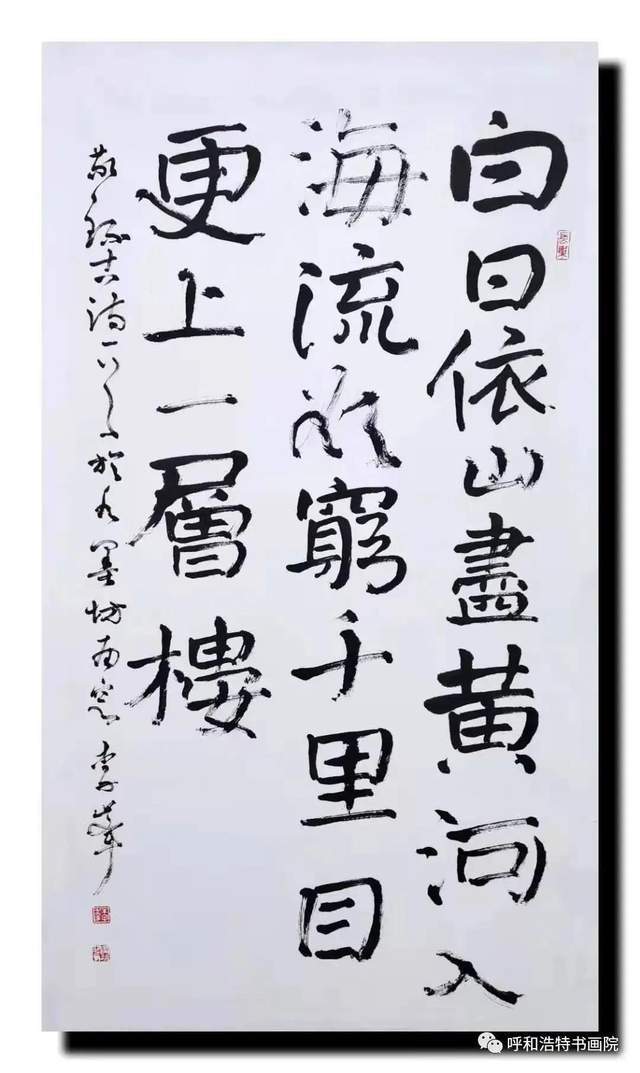 白日依山盡黄河入
海流欲窮千里目
更上一層樓
敬録古詩一首於水墨坊南窓 李峯
呼和浩特书画院